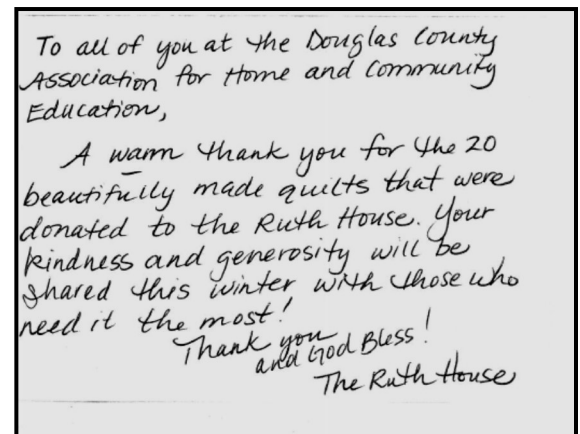 To all of you at the Douglas County
Association for Home and Community
Education,
A warm thank you for the 20
beautifully made quilts that were
donated to the Ruth House. Your
kindness and generosity will be
shared this winter with those who
need it the most!
Thank you
and God Bless!
The Ruth House